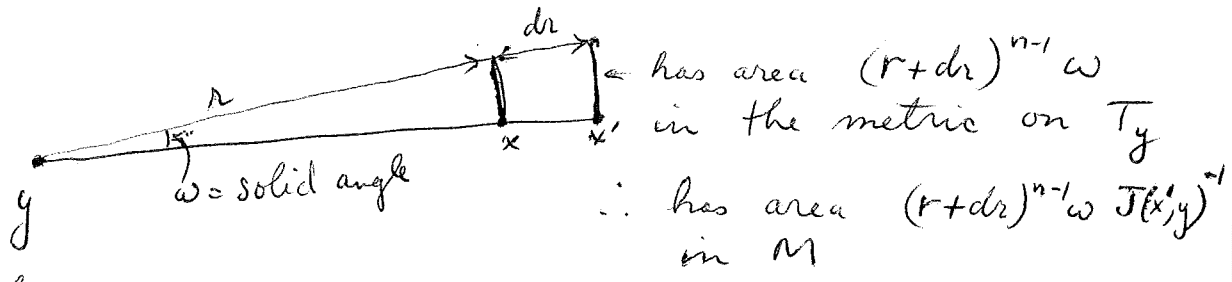 dr
r
← has area (r+dr)^{n-1} ω
x x' in the metric on T_y
ω = solid angle
y
∴ has area (r+dr)^{n-1} ω J(x',y)^{-1}
in M